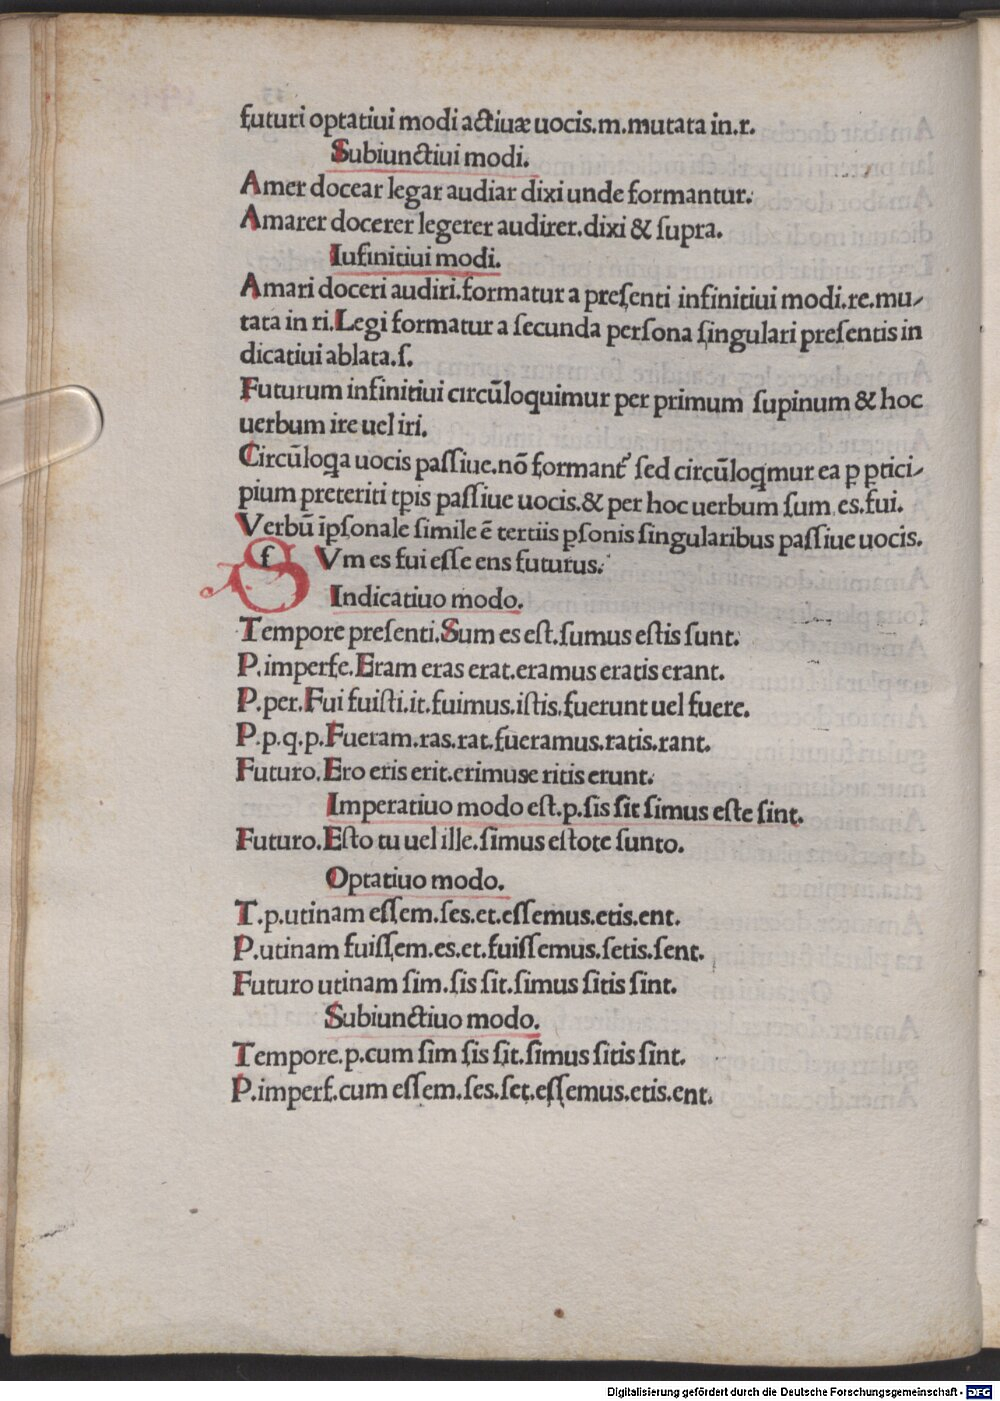 futuri optatiui modi actiuæ uocis.m.mutata in.r.
Subiunctiui modi.
Amer docear legar audiar dixi unde formantur.
Amarer docerer legerer audirer.dixi & ſupra.
Iufinitiui modi.
Amari doceri audiri.formatur a preſenti infinitiui modi.re.mu-
tata in ri.Legi formatur a ſecunda perſona ſingulari preſentis in
dicatiui ablata.ſ.
Futurum infinitiui circūloquimur per primum ſupinum & hoc
uerbum ire uel iri.
Circūloꝗa uocis paſſiue.nō formant᷑ ſed circūloꝗmur ea ꝑ ꝑtici-
pium preteriti tꝑis paſſiue uocis.& per hoc uerbum ſum.es.fui.
Verbū īꝑſonale ſimile ē tertiis ꝑſonis ſingularibus paſſiue uocis.
SVm es fui eſſe ens futurus.
Indicatiuo modo.
Tempore preſenti.Sum es eſt.ſumus eſtis ſunt.
P.imperfe.Eram eras erat.eramus eratis erant.
P.per.Fui fuiſti.it.fuimus.iſtis.fuerunt uel fuere.
P.p.q.p.Fueram.ras.rat.fueramus.ratis.rant.
Futuro.Ero eris erit.erimuse ritis erunt.
Imperatiuo modo eſt.p.ſis ſit ſimus eſte ſint.
Futuro.Eſto tu uel ille.ſimus eſtote ſunto.
Optatiuo modo.
T.p.utinam eſſem.ſes.et.eſſemus.etis.ent.
P.utinam fuiſſem.es.et.fuiſſemus.ſetis.ſent.
Futuro utinam ſim.ſis ſit.ſimus ſitis ſint.
Subiunctiuo modo.
Tempore.p.cum ſim ſis ſit.ſimus ſitis ſint.
P.imperf.cum eſſem.ſes.ſet.eſſemus.etis.ent.
Digitalisierung gefördert durch die Deutsche Forschungsgemeinschaft - DFG